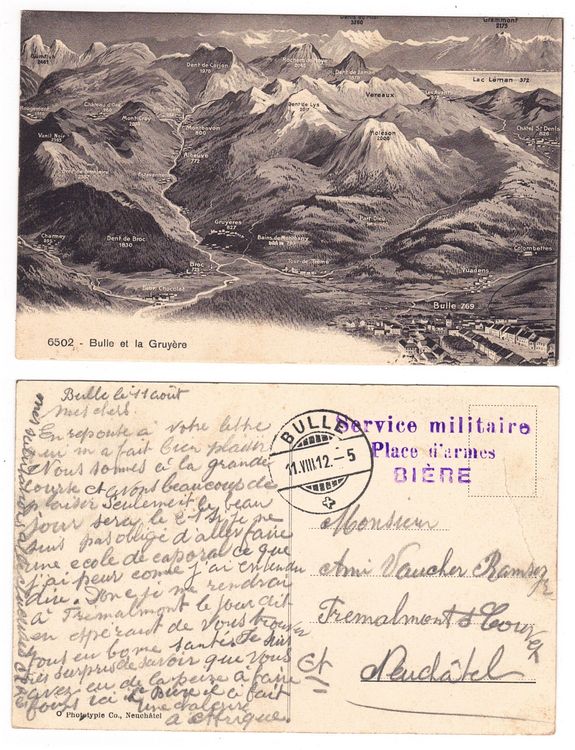 Dents du Midi
3260
Grammont
2175
Gumfluh
2461
Dent de Corjon
1970
Rochers de Naye
2045
Dent de Jaman
1878
Lac Léman 372
Rougemont
Château d'Œx
Montbovon
800
Dent de Lys
Verreaux
Les Avants
Vanil Noir
Albeuve
772
Moléson
2006
Châtel St Denis
826
Estavannens
Charmey
Dent de Broc
1830
Gruyères
827
Part Dieu
Colombettes
Broc
Bains de
Vuadens
Fabr. Chocolat
Bulle 769
6502 - Bulle et la Gruyère
Bulle le 11 août
mes chers
En reponce à votre lettre
qui m'a fait bien plaisir
Nous somes à la grande
course et avons beaucoup de
plaisir Seulement le beau
jour sera le si je ne
suis pas obligé d'aller faire
une ecole de caporal ce que
j'ai peur come j'ai entendu
dire. Donc je me rendrai
à Tremalmont le jour dit
en espérant de vous trouver
tous en bone santé. Je suis
très surpris de savoir que vous
avez eu de la peine à faire
foins ici à Bière il a fait
une chaleur
d'Afrique.
mes
BULLE
11.VIII.12.-5
Service militaire
Place d'armes
BIÈRE
Monsieur
Ami Vaucher
Tremalmont s/ Couvet
Ct Neuchâtel
Phototypie Co., Neuchâtel